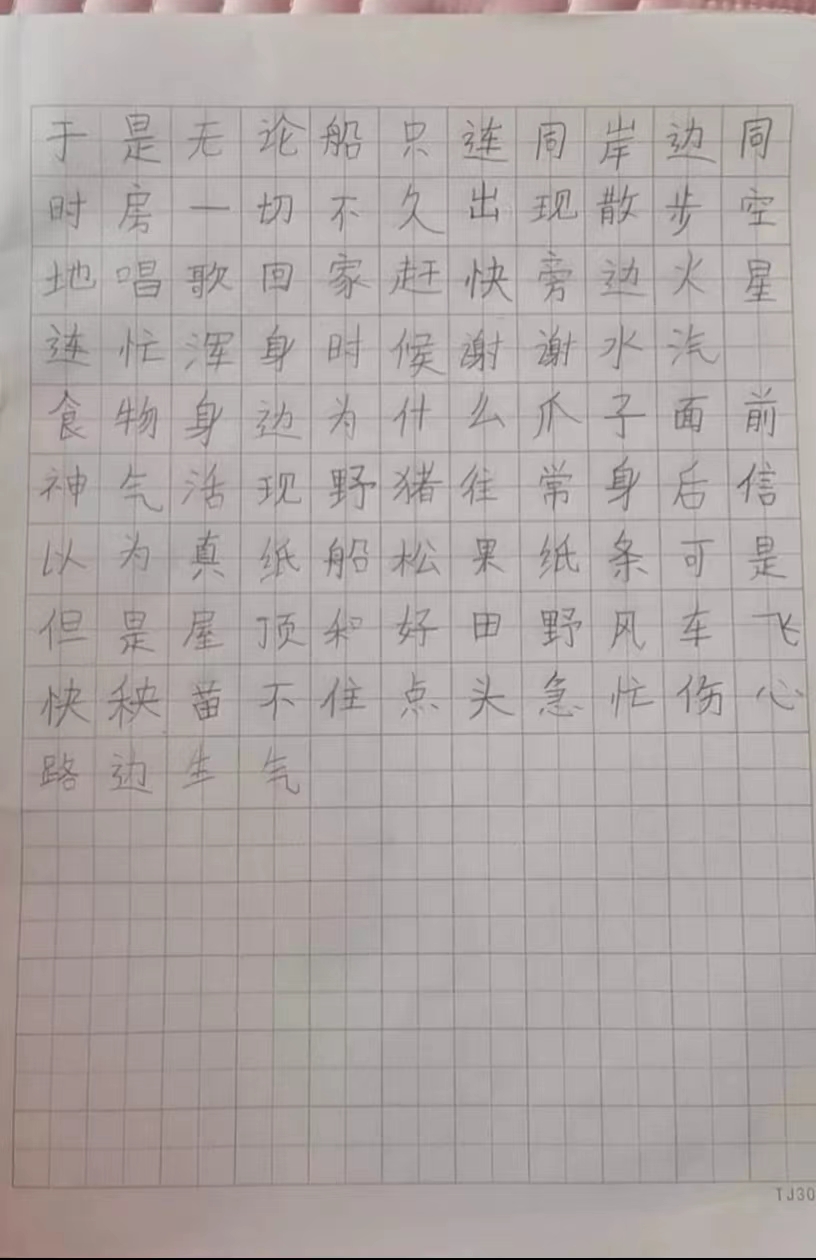 于是无论船只连同岸边同
时房一切不久出现散步空
地唱歌回家赶快旁边火星
连忙浑身时候谢谢水汽
食物身边为什么爪子面前
神气活现野猪往常身后信
以为真纸船松果纸条可是
但是屋顶和好田野风车飞
快秧苗不住点头急忙伤心
路边生气
TJ30